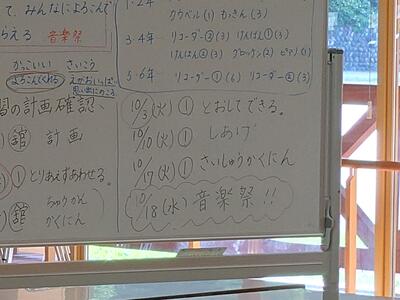 て、みんなによろこんで
らえる 音楽祭
かっこいい さいこう
よろこんでくれる えがおいっぱい
思い出にのこる
1・2年
カウベル(1) もっきん(3)
3・4年 リコーダー②(3) けんばん①(3)
けんばん②(3) グロッケン(2) ピアノ(1)
5・6年 リコーダー①(6) リコーダー②(3)
間の計画確認、
館 計画
① とりあえずあわせる。
ちゅうかん
館 かくにん
10/3(火) ① とおしてできる。
10/10(火) ① しあげ
10/17(火) ① さいしゅうかくにん
10/18(水) 音楽祭!!